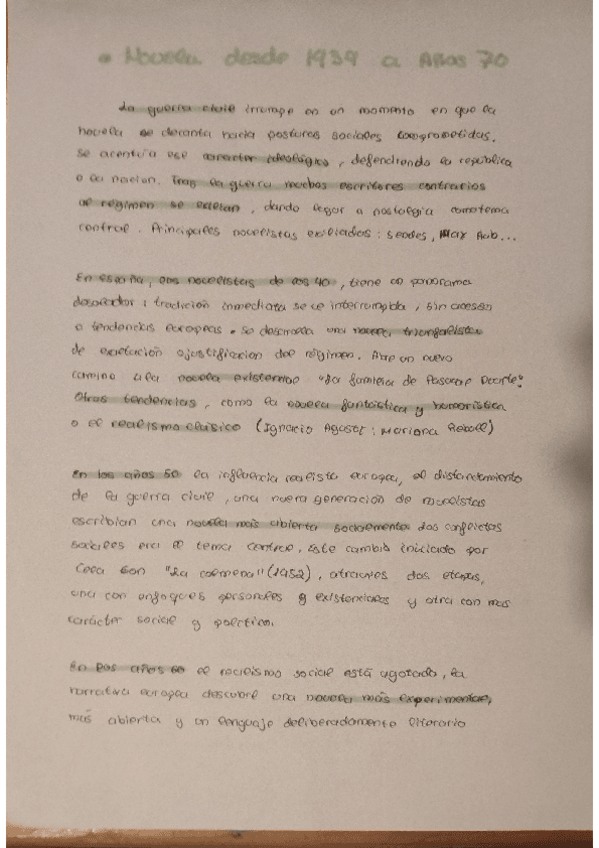 • Novela desde 1939 a Años 70
La guerra civil irrumpe en un momento en que la
novela se decanta hacia posturas sociales comprometidas.
se acentúa ese caracter ideológico, defendiendo la república
o la nacion. Tras la guerra muchos escritores contrarios
al régimen se exilian, dando lugar a nostalgia como tema
central. Principales novelistas exiliados: Sender, Max Aub...
En españa, los novelistas de los 40, tiene un panorama
desolador: tradición inmediata se ve interrumpida, sin acceso
a tendencias europeas. se desarrolla una novela triunfalista
de exaltación o justificacion del régimen. Abre un nuevo
camino la novela existencial "La familia de Pascual Duarte".
Otras tendencias, como la novela fantástica y humorística
o el realismo clásico (Ignacio Agustí: Mariona Rebull)
En los años 50 la influencia realista europea, el distanciamiento
de la guerra civil, una nueva generación de novelistas
escribian una novela más abierta socialmente. Los conflictos
sociales era el tema central, Este cambio iniciado por
Cela con "La colmena" (1952), atraviesa dos etapas,
una con enfoques personales y existenciales y otra con mas
carácter social y político.
En los años 60 el realismo social está agotado, la
narrativa europea descubre una novela más experimental,
más abierta y un lenguaje deliberadamente literario